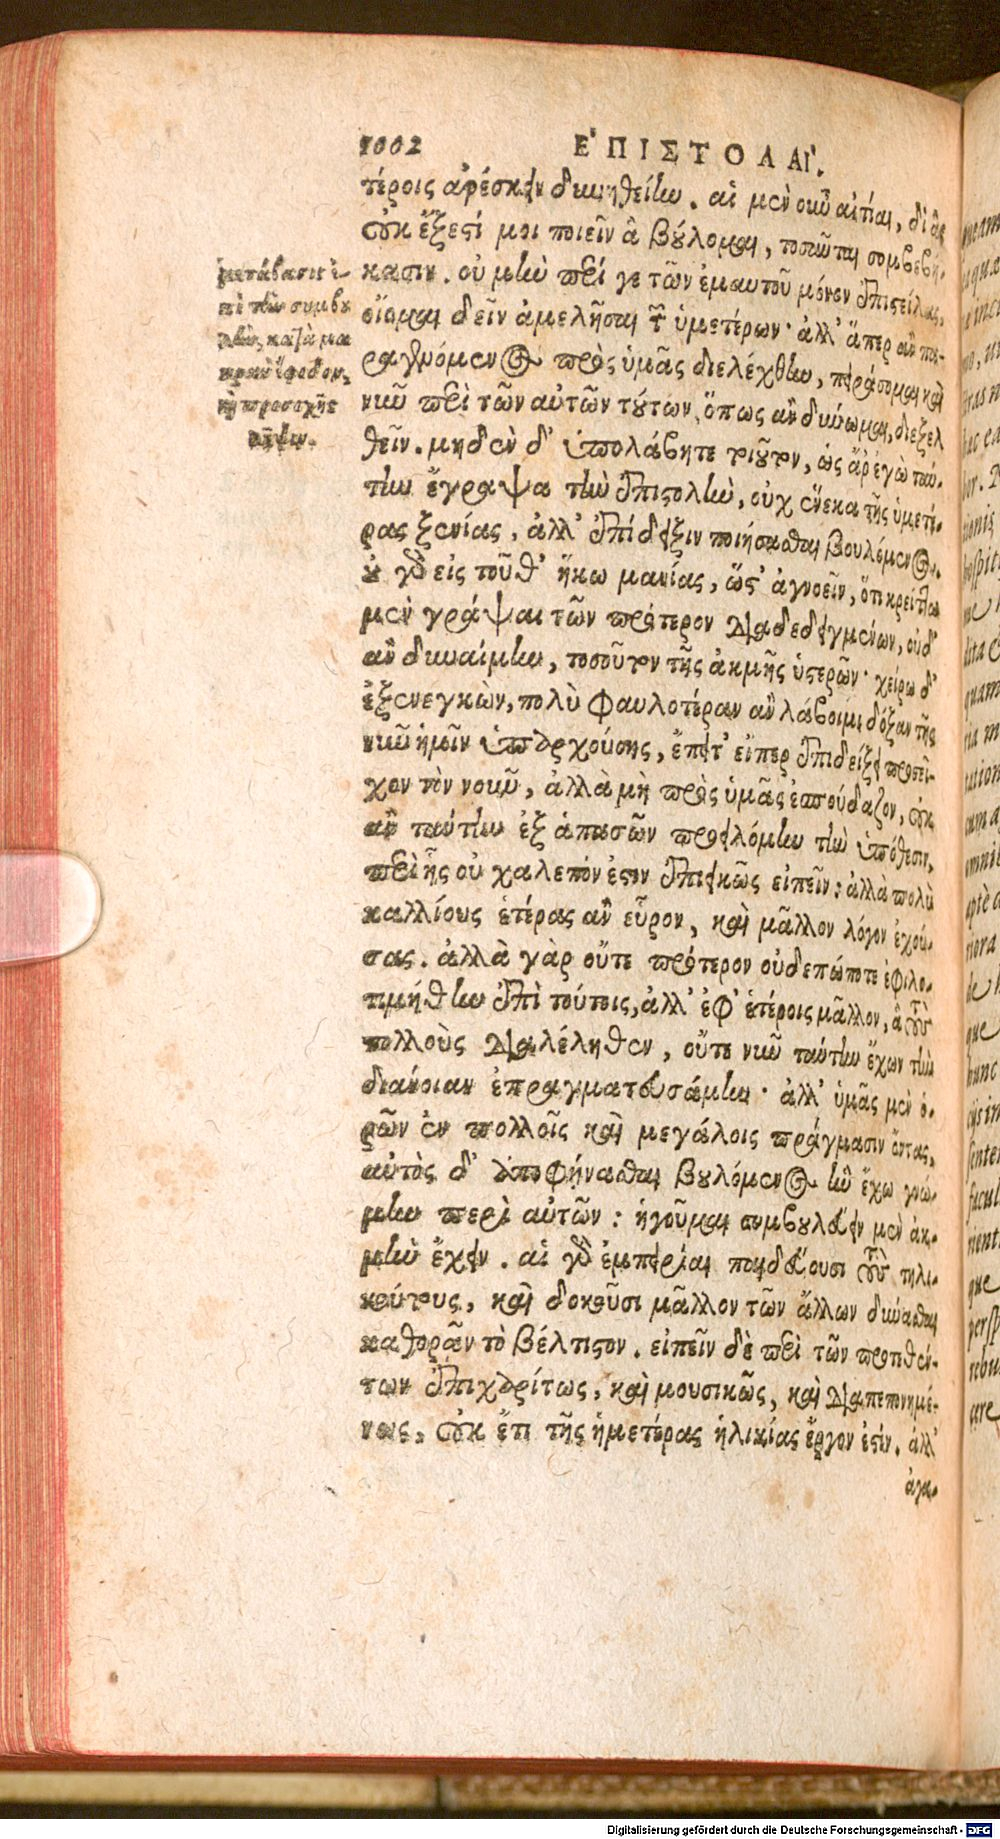 1002 ἘΠΙΣΤΟΛΑΊ.
τέροις ἀρέσκειν δυνηθείην. αἱ μὲν οὖν αἰτίαι, δι' ἃς
οὐκ ἔξεστί μοι ποιεῖν ἃ βούλομαι, τοσαῦται συμβεβή-
κασιν. οὐ μὴν περί γε τῶν ἐμαυτοῦ μόνον ἐπιστείλας,
οἴομαι δεῖν ἀμελῆσαι τῶν ὑμετέρων· ἀλλ' ἅπερ ἂν πα-
ραγενόμενος πρὸς ὑμᾶς διελέχθην, πειράσομαι καὶ
νῦν περὶ τῶν αὐτῶν τούτων, ὅπως ἂν δύνωμαι, διεξελ
θεῖν. μηδὲν δ' ὑπολάβητε τοιοῦτον, ὡς ἄρ' ἐγὼ ταύ-
την ἔγραψα τὴν ἐπιστολὴν, οὐχ ἕνεκα τῆς ὑμετέ-
ρας ξενίας, ἀλλ' ἐπίδειξιν ποιήσασθαι βουλόμενος.
οὐ γὰρ εἰς τοῦθ' ἥκω μανίας, ὥστ' ἀγνοεῖν, ὅτι κρείττω
μὲν γράψαι τῶν πρότερον διαδεδειγμένων, οὐδ'
ἂν δυναίμην, τοσοῦτον τῆς ἀκμῆς ὑστερῶν· χείρω δ'
ἐξενεγκὼν, πολὺ φαυλοτέραν ἂν λάβοιμι δόξαν τῆς
νῦν ἡμῖν ὑπαρχούσης, ἔπειτ' εἴπερ ἐπιδείξει προσεῖ-
χον τὸν νοῦν, ἀλλὰ μὴ πρὸς ὑμᾶς ἐσπούδαζον, οὐκ
ἂν ταύτην ἐξ ἁπασῶν προειλόμην τὴν ὑπόθεσιν,
περὶ ἧς οὐ χαλεπόν ἐστιν ἐπιεικῶς εἰπεῖν: ἀλλὰ πολὺ
καλλίους ἑτέρας ἂν εὗρον, καὶ μᾶλλον λόγον ἐχού-
σας. ἀλλὰ γὰρ οὔτε πρότερον οὐδεπώποτε ἐφιλο-
τιμήθην ἐπὶ τούτοις, ἀλλ' ἐφ' ἑτέροις μᾶλλον, ἃ τοὺς
πολλοὺς διαλέληθεν, οὔτε νῦν ταύτην ἔχων τὴν
διάνοιαν ἐπραγματευσάμην· ἀλλ' ὑμᾶς μὲν ὁ-
ρῶν ἐν πολλοῖς καὶ μεγάλοις πράγμασιν ὄντας,
αὐτὸς δ' ἀποφήνασθαι βουλόμενος ἣν ἔχω γνώ-
μην περὶ αὐτῶν: ἡγοῦμαι συμβουλεύειν μὲν ἀκ-
μὴν ἔχειν. αἱ γὰρ ἐμπειρίαι παιδεύουσι τοὺς τηλι-
κούτους, καὶ δοκοῦσι μᾶλλον τῶν ἄλλων δύνασθαι
καθορᾶν τὸ βέλτιστον. εἰπεῖν δὲ περὶ τῶν προτιθέν-
των ἐπιχαρίτως, καὶ μουσικῶς, καὶ διαπεπονημέ-
νως, οὐκ ἔτι τῆς ἡμετέρας ἡλικίας ἔργον ἐστίν. ἀλλ'
ἀγα-
μετάβασις ἐ-
πὶ τὴν συμβου
λὴν, κατὰ μα
κρὰν ἔφοδον,
ἢ προσοχῆς
λῆψιν.
Digitalisierung gefördert durch die Deutsche Forschungsgemeinschaft - DFG